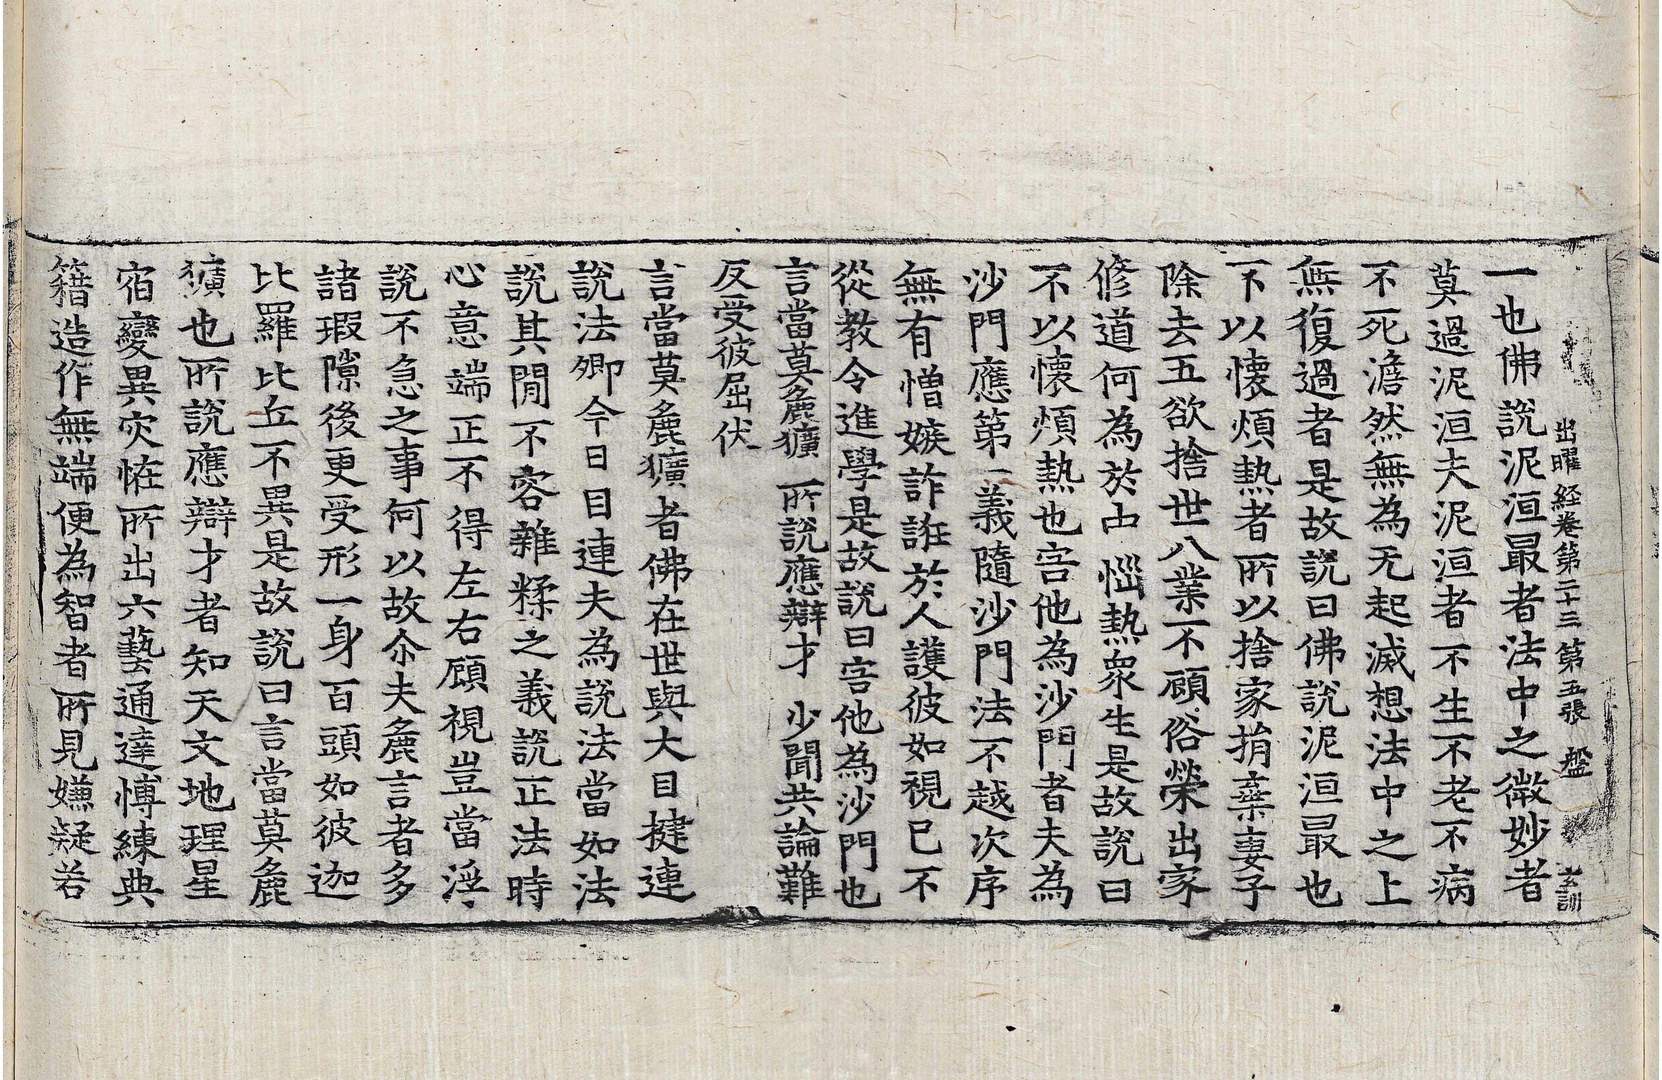 出曜経卷第二十三 第五張 盤 玄訓
一也佛說泥洹最者法中之微妙者
莫過泥洹夫泥洹者不生不老不病
不死澹然無為无起滅想法中之上
無復過者是故說曰佛說泥洹最也
不以懷煩熱者所以捨家捐棄妻子
除去五欲捨世八業不顧俗榮出家
修道何為於中惱熱衆生是故說曰
不以懷煩熱也害他為沙門者夫為
沙門應第一義隨沙門法不越次序
無有憎嫉詐誑於人護彼如視己不
從教令進學是故說曰害他為沙門也
言當莫麁獷 所說應辯才 少聞共論難
反受彼屈伏
言當莫麁獷者佛在世與大目揵連
說法卿今日目連夫為說法當如法
說其間不容雜糅之義說正法時
心意端正不得左右顧視豈當婬
說不急之事何以故尒夫麁言者多
諸瑕隙後更受形一身百頭如彼迦
比羅比丘不異是故說曰言當莫麁
獷也所說應辯才者知天文地理星
宿變異灾恠所出六藝通達博練典
籍造作無端便為智者所見嫌疑若